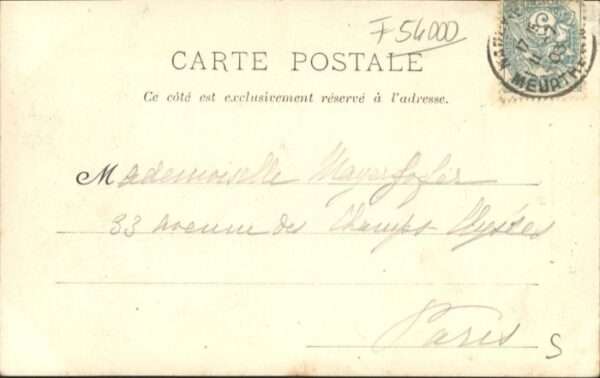 F 54000
CARTE POSTALE
Ce côté est exclusivement réservé à l'adresse.
Mademoiselle Mayerhofer
33 avenue des Champs Elysées
Paris
S
5
17
MEURTHE